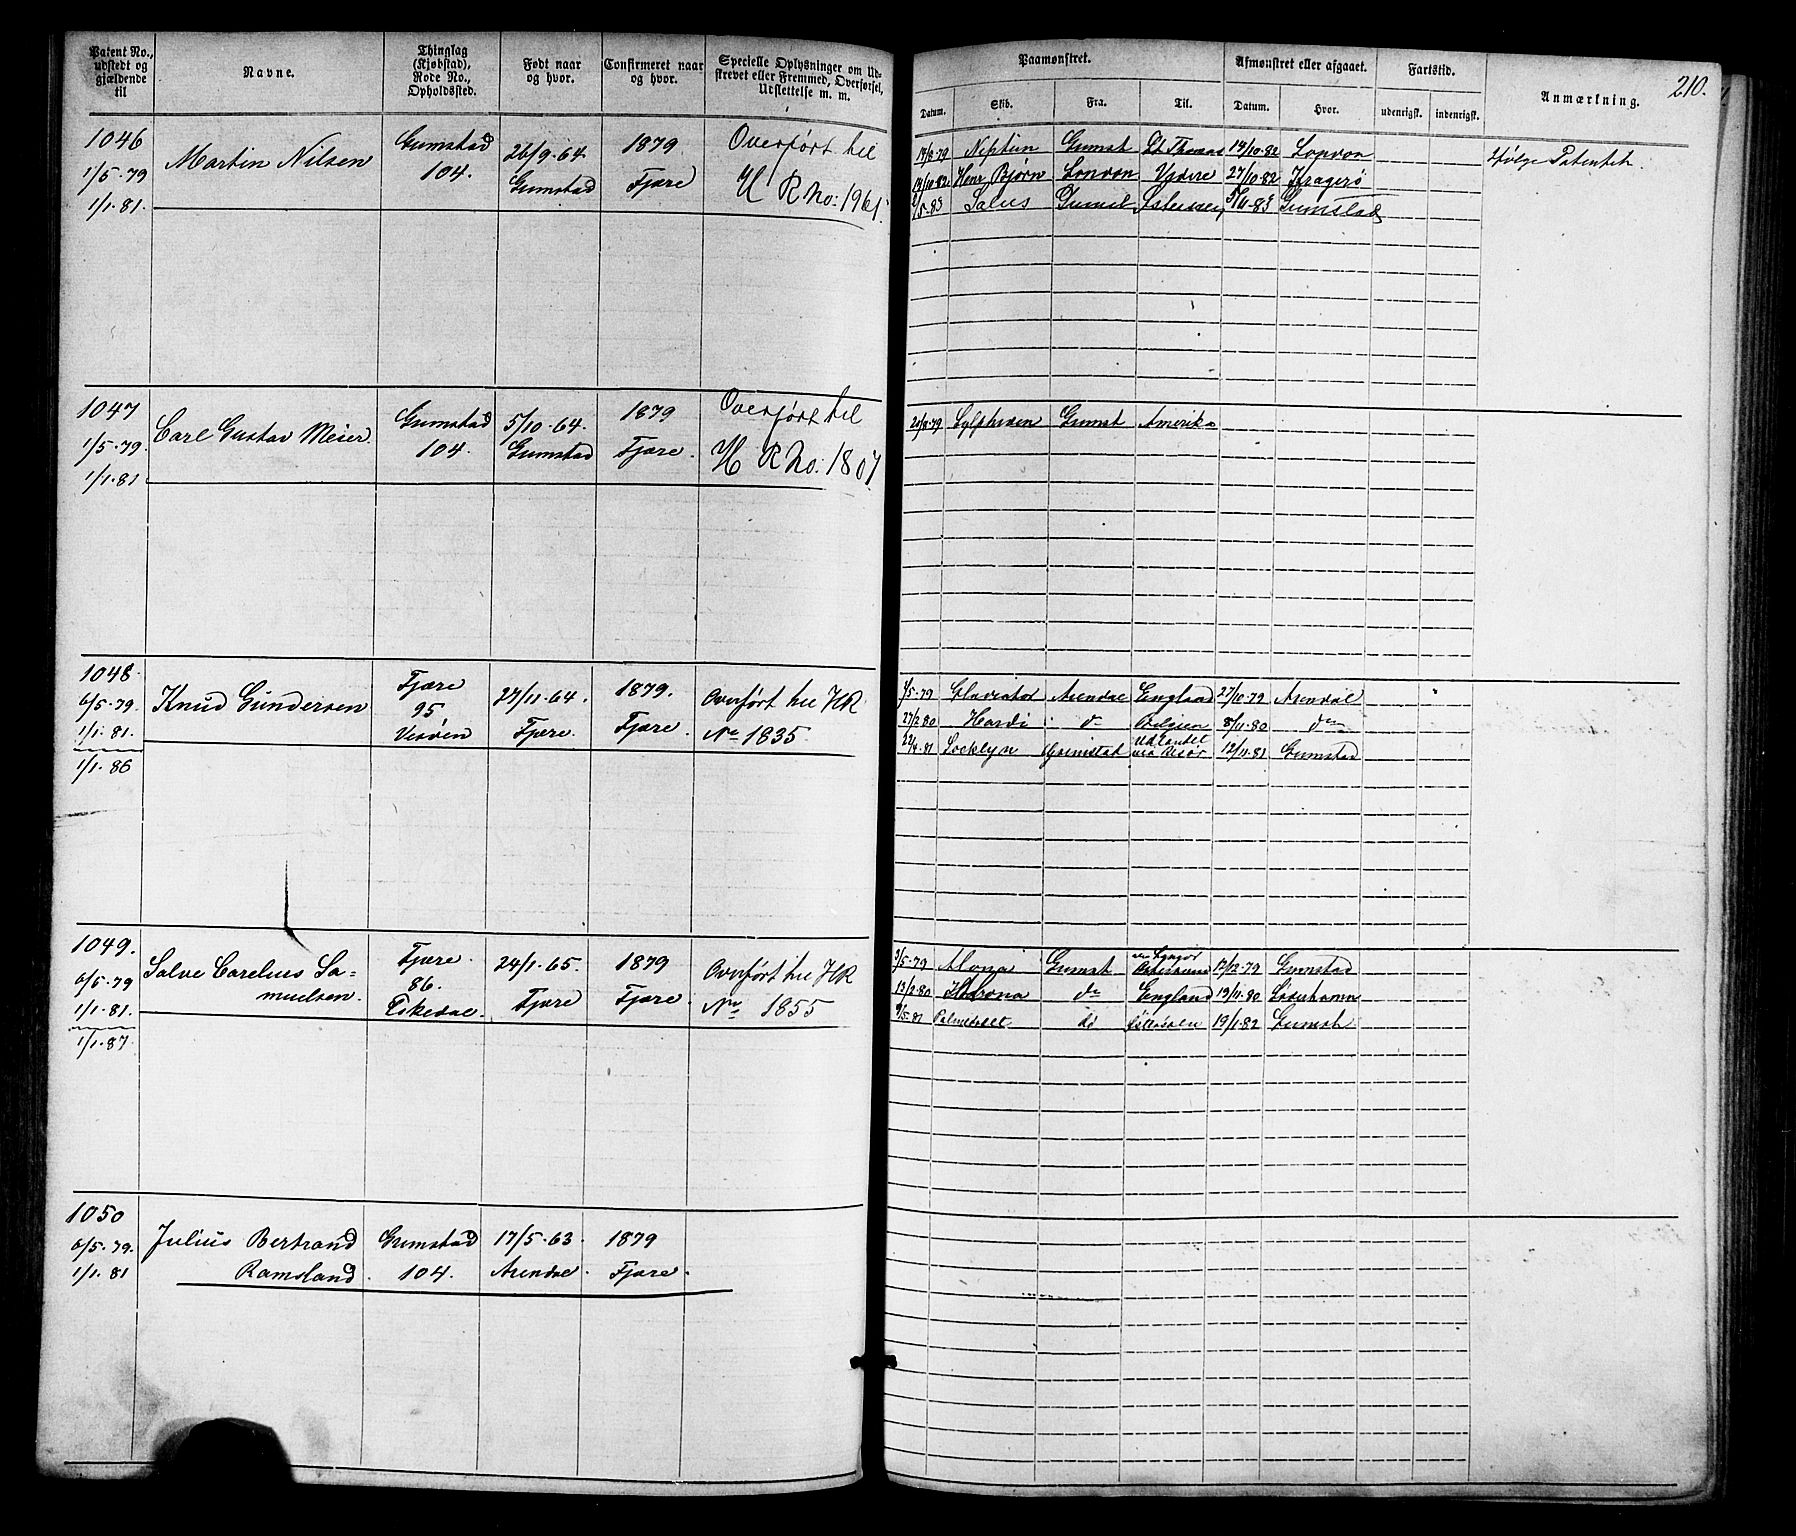 Patent No., udstedt og gjældende til
Navne.
Thinglag (Kjøbstad), Rode No., Opholdssted.
Født naar og hvor.
Confirmeret naar og hvor.
Specielle Oplysninger om Udstrevet eller Fremmed, Overførsel, Udslettelse m. m.
Paamønstret.
Afmønstret eller afgaaet.
Fartstid.
Anmærkning.
210.
Datum.
Skib.
Fra.
Til.
Datum.
Hvor.
udenrigsk.
indenrigsk.
1046
1/5-79
1/1.81.
Martin Nilsen
Grimstad
104.
26/9-64
Grimstad
1879
Fjære
Overført til
H R No: 1961.
14/8-79 Neptun Grimst St Thomas 14/10-82 London
ifølge Patentet
14/10-82 Henr Bjørn London Videre 27/10-82 Kragerø
5-83 Salus 5/11-83 Grimstad
1047
1/5-79
1/1.81
Carl Gustav Meier
Grimstad
104.
5/10-64.
Grimstad
1879
Fjære.
Overført til
H R No: 1807.
Sylphiden Grimst Amerika
1048.
6/5-79.
1/1.81.
1/1.86
Knud Gundersen
Fjære
95
27/11-64.
Fjære.
1879.
Fjære.
Overført til HR
No 1835.
5-79 Arendal England 27/10-79 Arendal
27/2-80 Hardi do Belgien 8/11-80 do
22/4-81 Locklyn Grimstad Udlandet 12/11-81 Grimstad
1049.
6/5-79
1/1.81.
1/1-87.
Salve Carelius Samuelsen.
Fjære
86.
24/1-65.
Fjære
1879
Fjære.
Overført til HR
No 1855
5-79 Mona Grimst 12/12-79 Grimstad
13/2-80 do England 19/11-80 Söderhamn
5-81 do Østersøen 19/1-82 Grimst
1050
6/5-79.
1/1.81
Julius Bertrand
Ramsland.
Grimstad
104.
17/5-63.
Arendal
1879
Fjære.